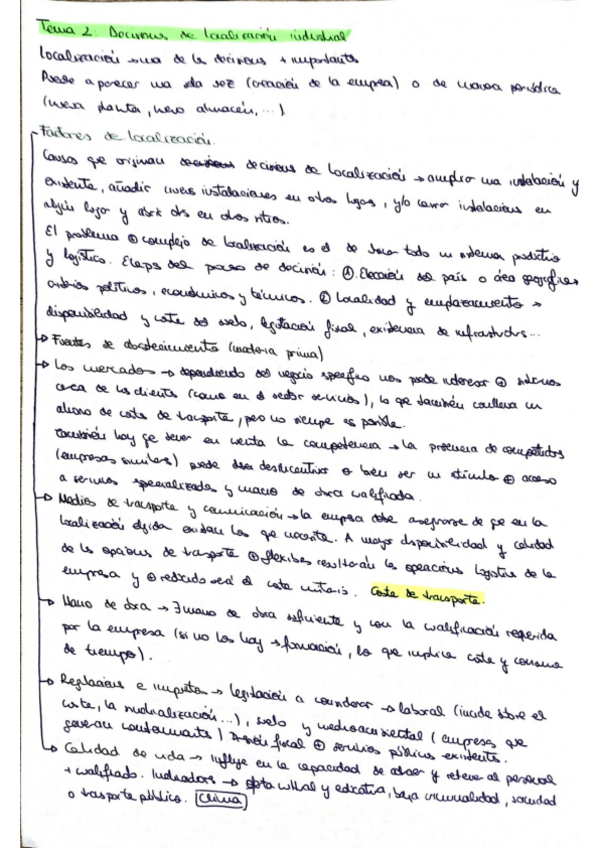 Tema 2: Decisiones de localización industrial
Localización → una de las decisiones + importantes
Puede aparecer una sola vez (creación de la empresa) o de manera periódica
(nueva planta, nuevo almacén, ...)
Factores de localización.
Causas que originan decisiones de localización → ampliar una instalación y
existente, añadir nuevas instalaciones en otros lugares, y/o cerrar instalaciones en
algún lugar y abrir otras en otros sitios.
El problema ⊕ complejo de localización es el de todo un sistema productivo
y logístico. Etapas del proceso de decisión: ①. Elección del país o área geográfica
criterios políticos, económicos y técnicos. ② Localidad y emplazamiento →
disponibilidad y coste del suelo, legislación fiscal, existencia de infraestrcts...
→ Fuentes de abastecimiento (materia prima)
→ Los mercados → dependiendo del negocio específico nos puede interesar ⊕
cerca de los clientes (como en el sector servicios), lo que también conlleva un
ahorro de costes de transporte, pero no siempre es posible.
También hay qe tener en cuenta la competencia → la presencia de competidores
(empresas similares) puede ser desincentivo o bien ser un estímulo ⊕ acceso
a servicios especializados y mano de obra cualificada.
→ Medios de transporte y comunicación → la empresa debe asegurarse de qe en la
localización elegida existan los qe necesita. A mayor disponibilidad y calidad
de las opciones de trasporte ⊕ flexibles resultarán las operaciones logísticas de la
empresa y ⊕ reducido será el coste unitario. Coste de transporte.
→ Mano de obra → ∃ mano de obra suficiente y con la cualificación requerida
por la empresa (si no los hay → formación, lo que implica coste y consumo
de tiempo).
→ Regulaciones e impuestos → legislación a considerar → laboral (incide sobre el
coste, la sindicalización...), suelo y medioambiental (empresas que
generan contaminantes) Presión fiscal ⊕ servicios públicos existentes.
→ Calidad de vida → influye en la capacidad de atraer y retener al personal
+ cualificado. Indicadores → oferta cultural y educativa, baja criminalidad, sanidad
o trasporte público. Clima